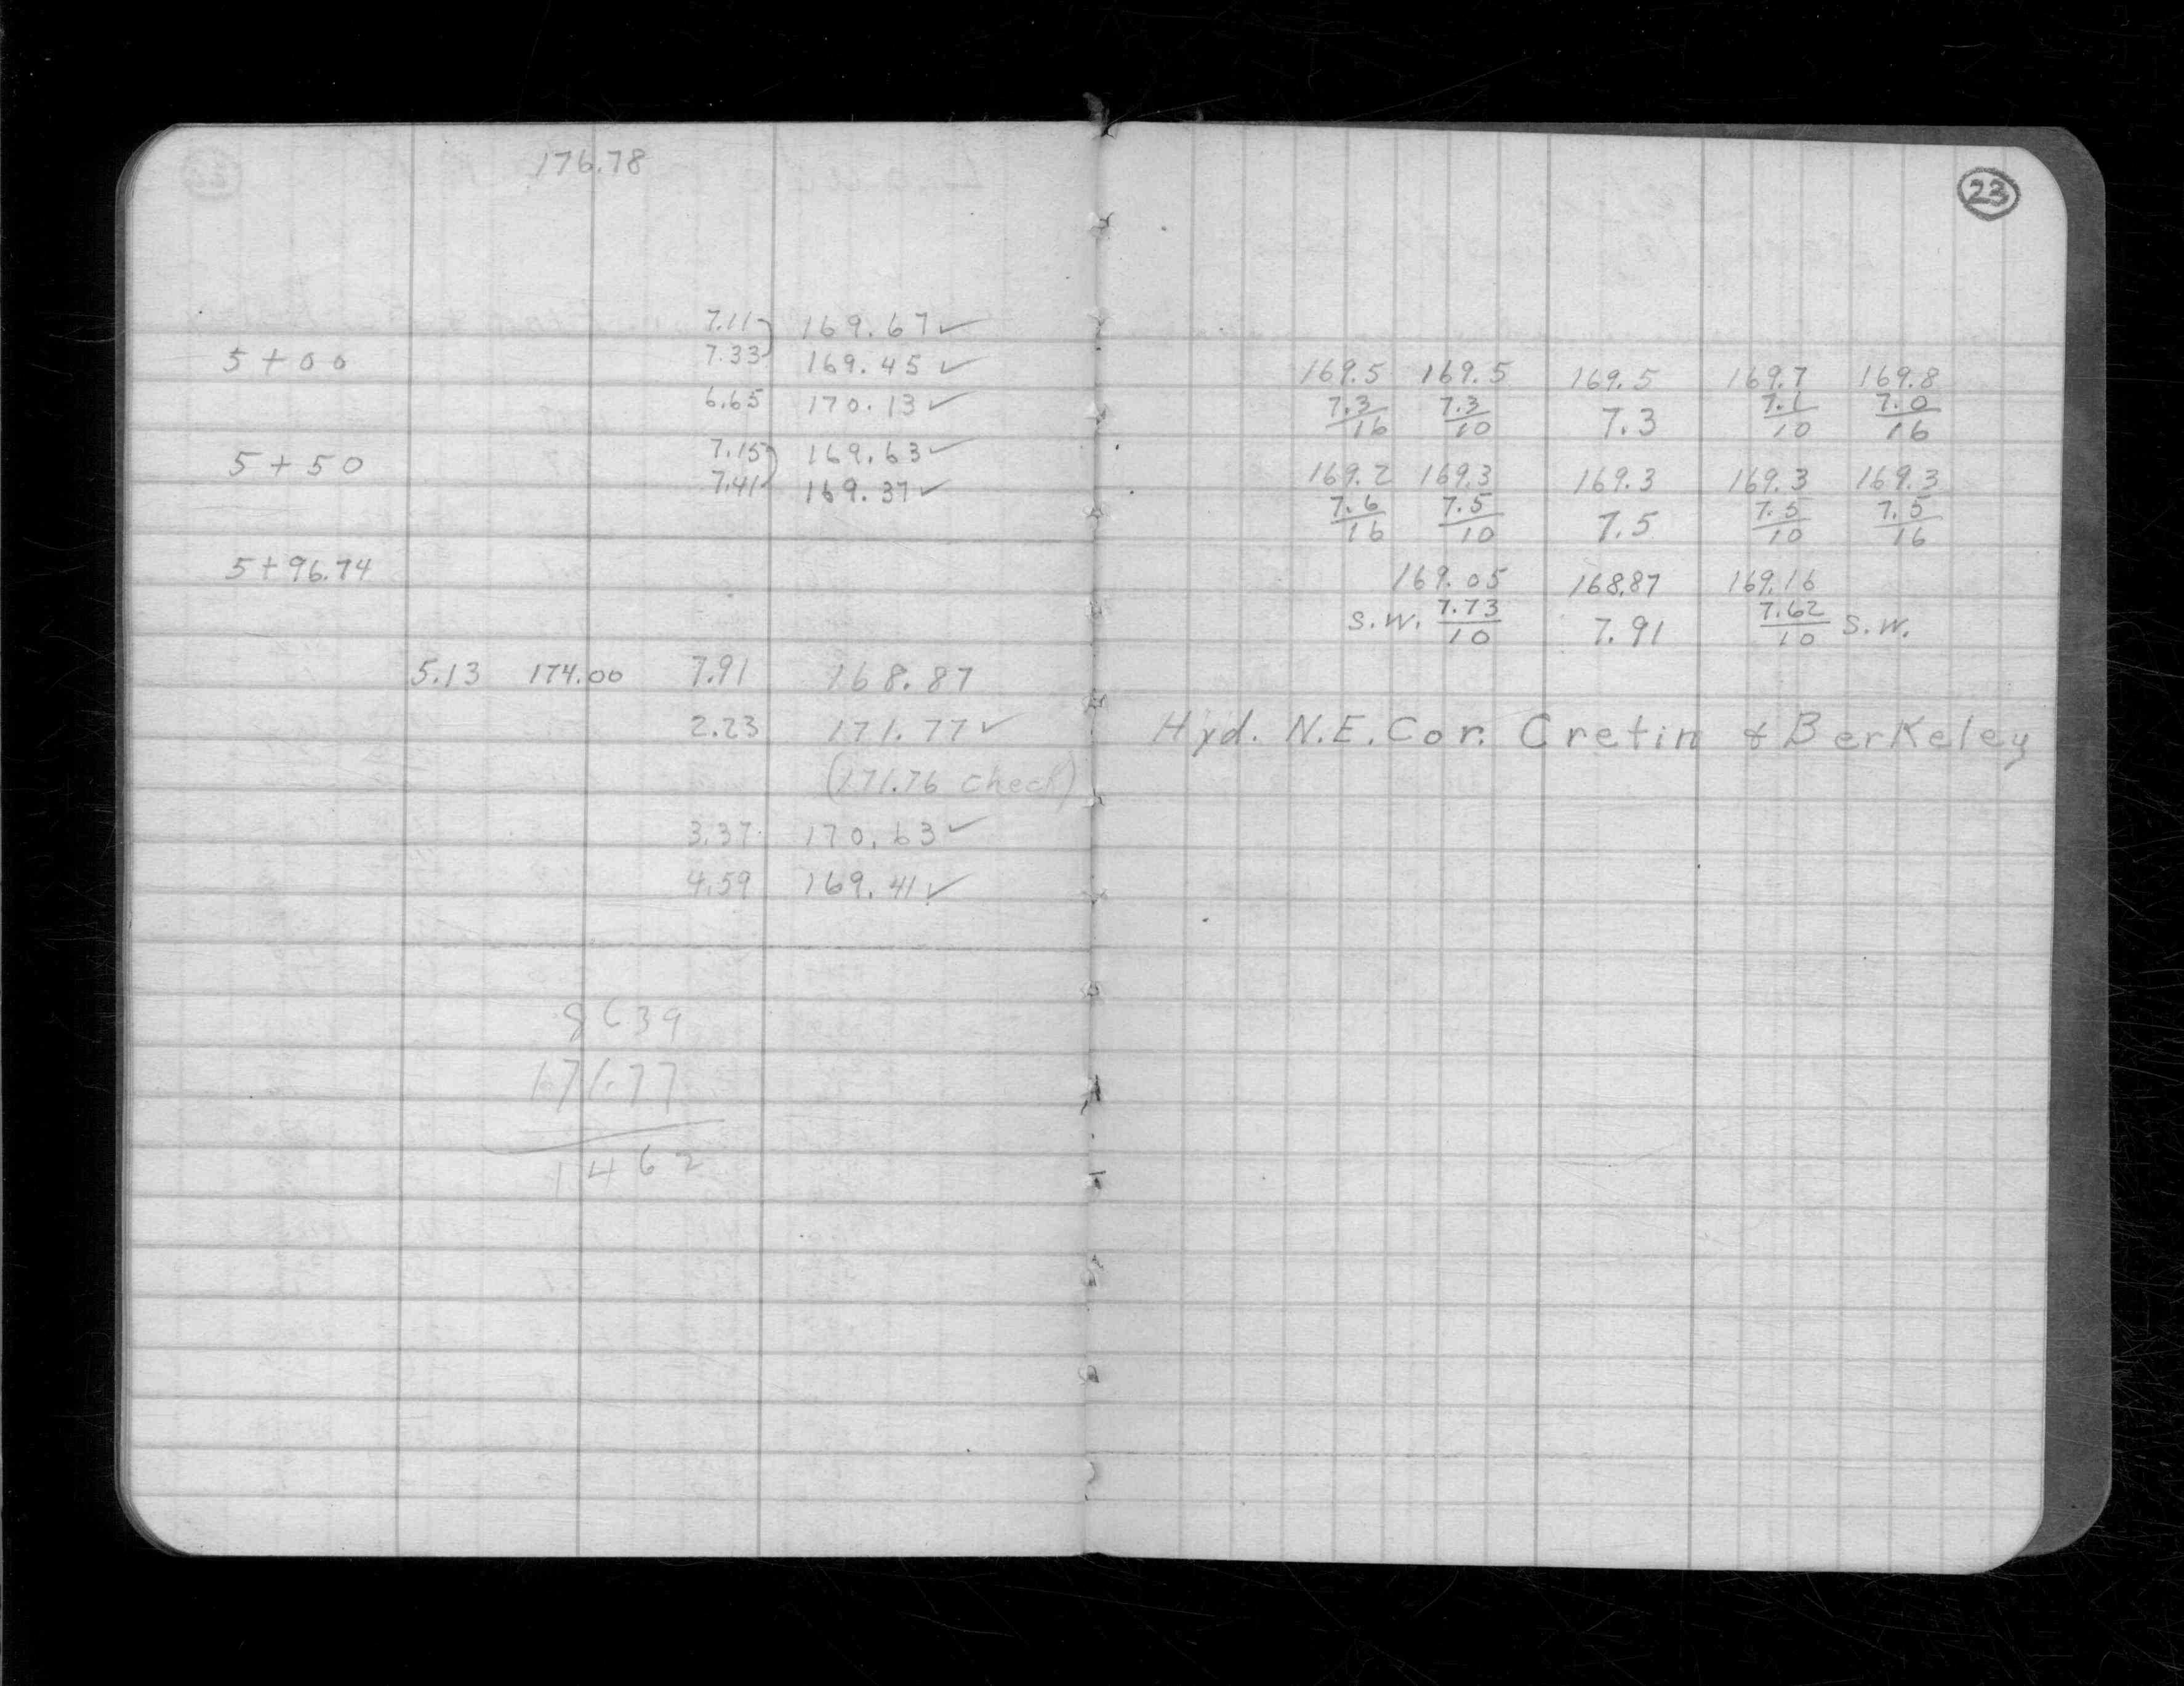 176.78
7.11 169.67 ✓
5+00 7.33 169.45 ✓
6.65 170.13 ✓
7.15 169.63 ✓
5+50
7.41 169.37 ✓
5+96.74
5.13 174.00 7.91 168.87
2.23 171.77 ✓
(171.76 check)
3.37 170.63 ✓
4.59 169.41 ✓
8639
171.77
1462
23
169.5 169.5 169.5 169.7 169.8
7.3/16 7.3/10 7.3 7.1/10 7.0/16
169.2 169.3 169.3 169.3 169.3
7.6/16 7.5/10 7.5 7.5/10 7.5/16
169.05 168.87 169.16
S.W. 7.73/10 7.91 7.62/10 S.W.
Hyd. N.E. Cor. Cretin & Berkeley